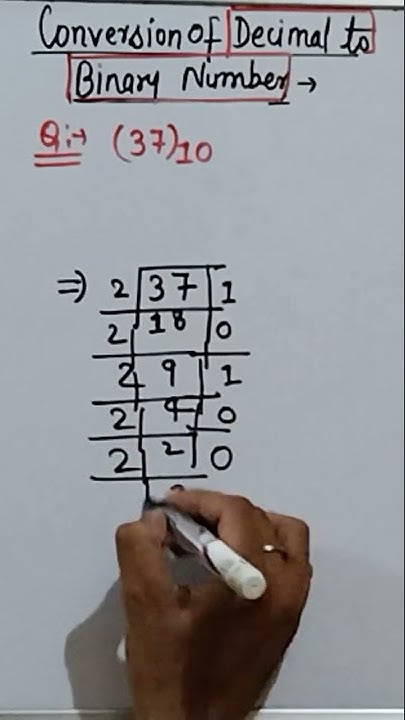 Conversion of Decimal to
Binary Number →
Q:→ (37)10
⇒ 2 37 1
2 18 0
2 9 1
2 4 0
2 2 0